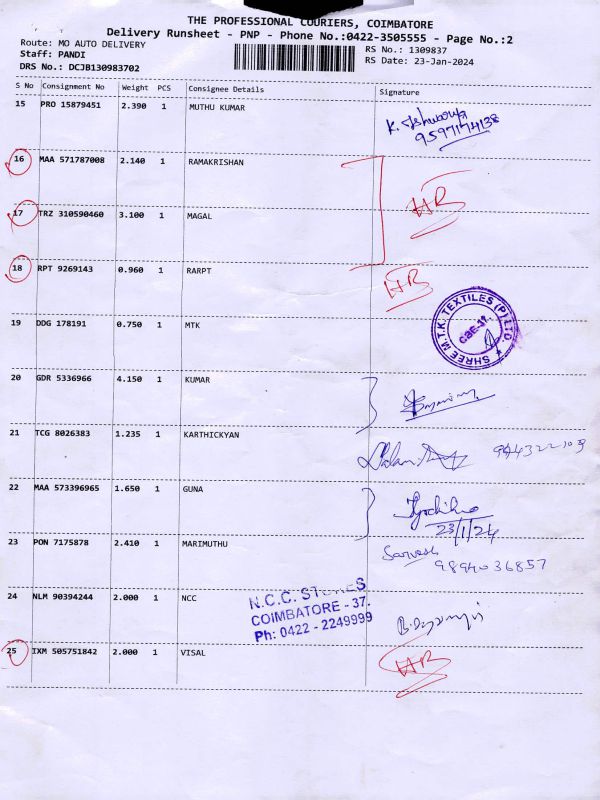 THE PROFESSIONAL COURIERS, COIMBATORE
Delivery Runsheet - PNP - Phone No.:0422-3505555 - Page No.:2
Route: MO AUTO DELIVERY
RS No.: 1309837
Staff: PANDI
RS Date: 23-Jan-2024
DRS No.: DCJB130983702
S No Consignment No Weight PCS Consignee Details Signature
15 PRO 15879451 2.390 1 MUTHU KUMAR
9597174138
16 MAA 571787008 2.140 1 RAMAKRISHAN
HB
17 TRZ 310590460 3.100 1 MAGAL
18 RPT 9269143 0.960 1 RARPT
HB
19 DDG 178191 0.750 1 MTK
SHREE M.T.K. TEXTILES (P) LTD.
20 GDR 5336966 4.150 1 KUMAR
21 TCG 8026383 1.235 1 KARTHICKYAN
22 MAA 573396965 1.650 1 GUNA
23/1/24
23 PON 7175878 2.410 1 MARIMUTHU
Sarvesh
9894036857
24 NLM 90394244 2.000 1 NCC
N.C.C. STORES
COIMBATORE - 37.
Ph: 0422 - 2249999
25 IXM 505751842 2.000 1 VISAL
HB